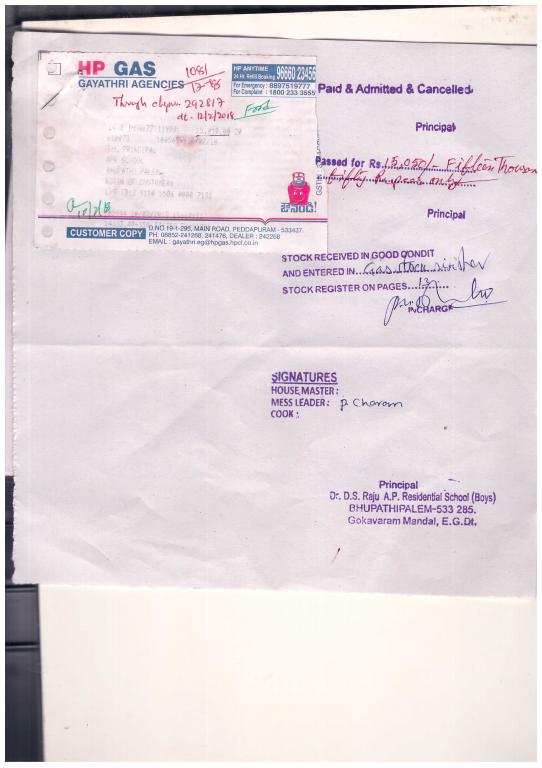 HP GAS
GAYATHRI AGENCIES
1081
HP ANYTIME
24 Hr. Refill Booking 96660 23456
For Emergency : 8897519777
For Complaint : 1800 233 3555
Through 292817
dt. 12/2/2018
Food
THE PRINCIPAL
APR SCHOOL
BHUPATHI PALEM
జానెండి!
CUSTOMER COPY
D.NO.19-1-295, MAIN ROAD, PEDDAPURAM - 533437.
PH: 08852-241268, 241476, DEALER : 242268
EMAIL : gayathri.eg@hpgas.hpcl.co.in
Paid & Admitted & Cancelled
Principal
Passed for Rs. 15,050/- Fifteen Thousan
fifty Rupees only
Principal
STOCK RECEIVED IN GOOD CONDIT
AND ENTERED IN Gas stock
STOCK REGISTER ON PAGES 13
INCHARGE
SIGNATURES
HOUSE MASTER :
MESS LEADER : P. Charan
COOK :
Principal
Dr. D.S. Raju A.P. Residential School (Boys)
BHUPATHIPALEM-533 285.
Gokavaram Mandal, E.G.Dt.